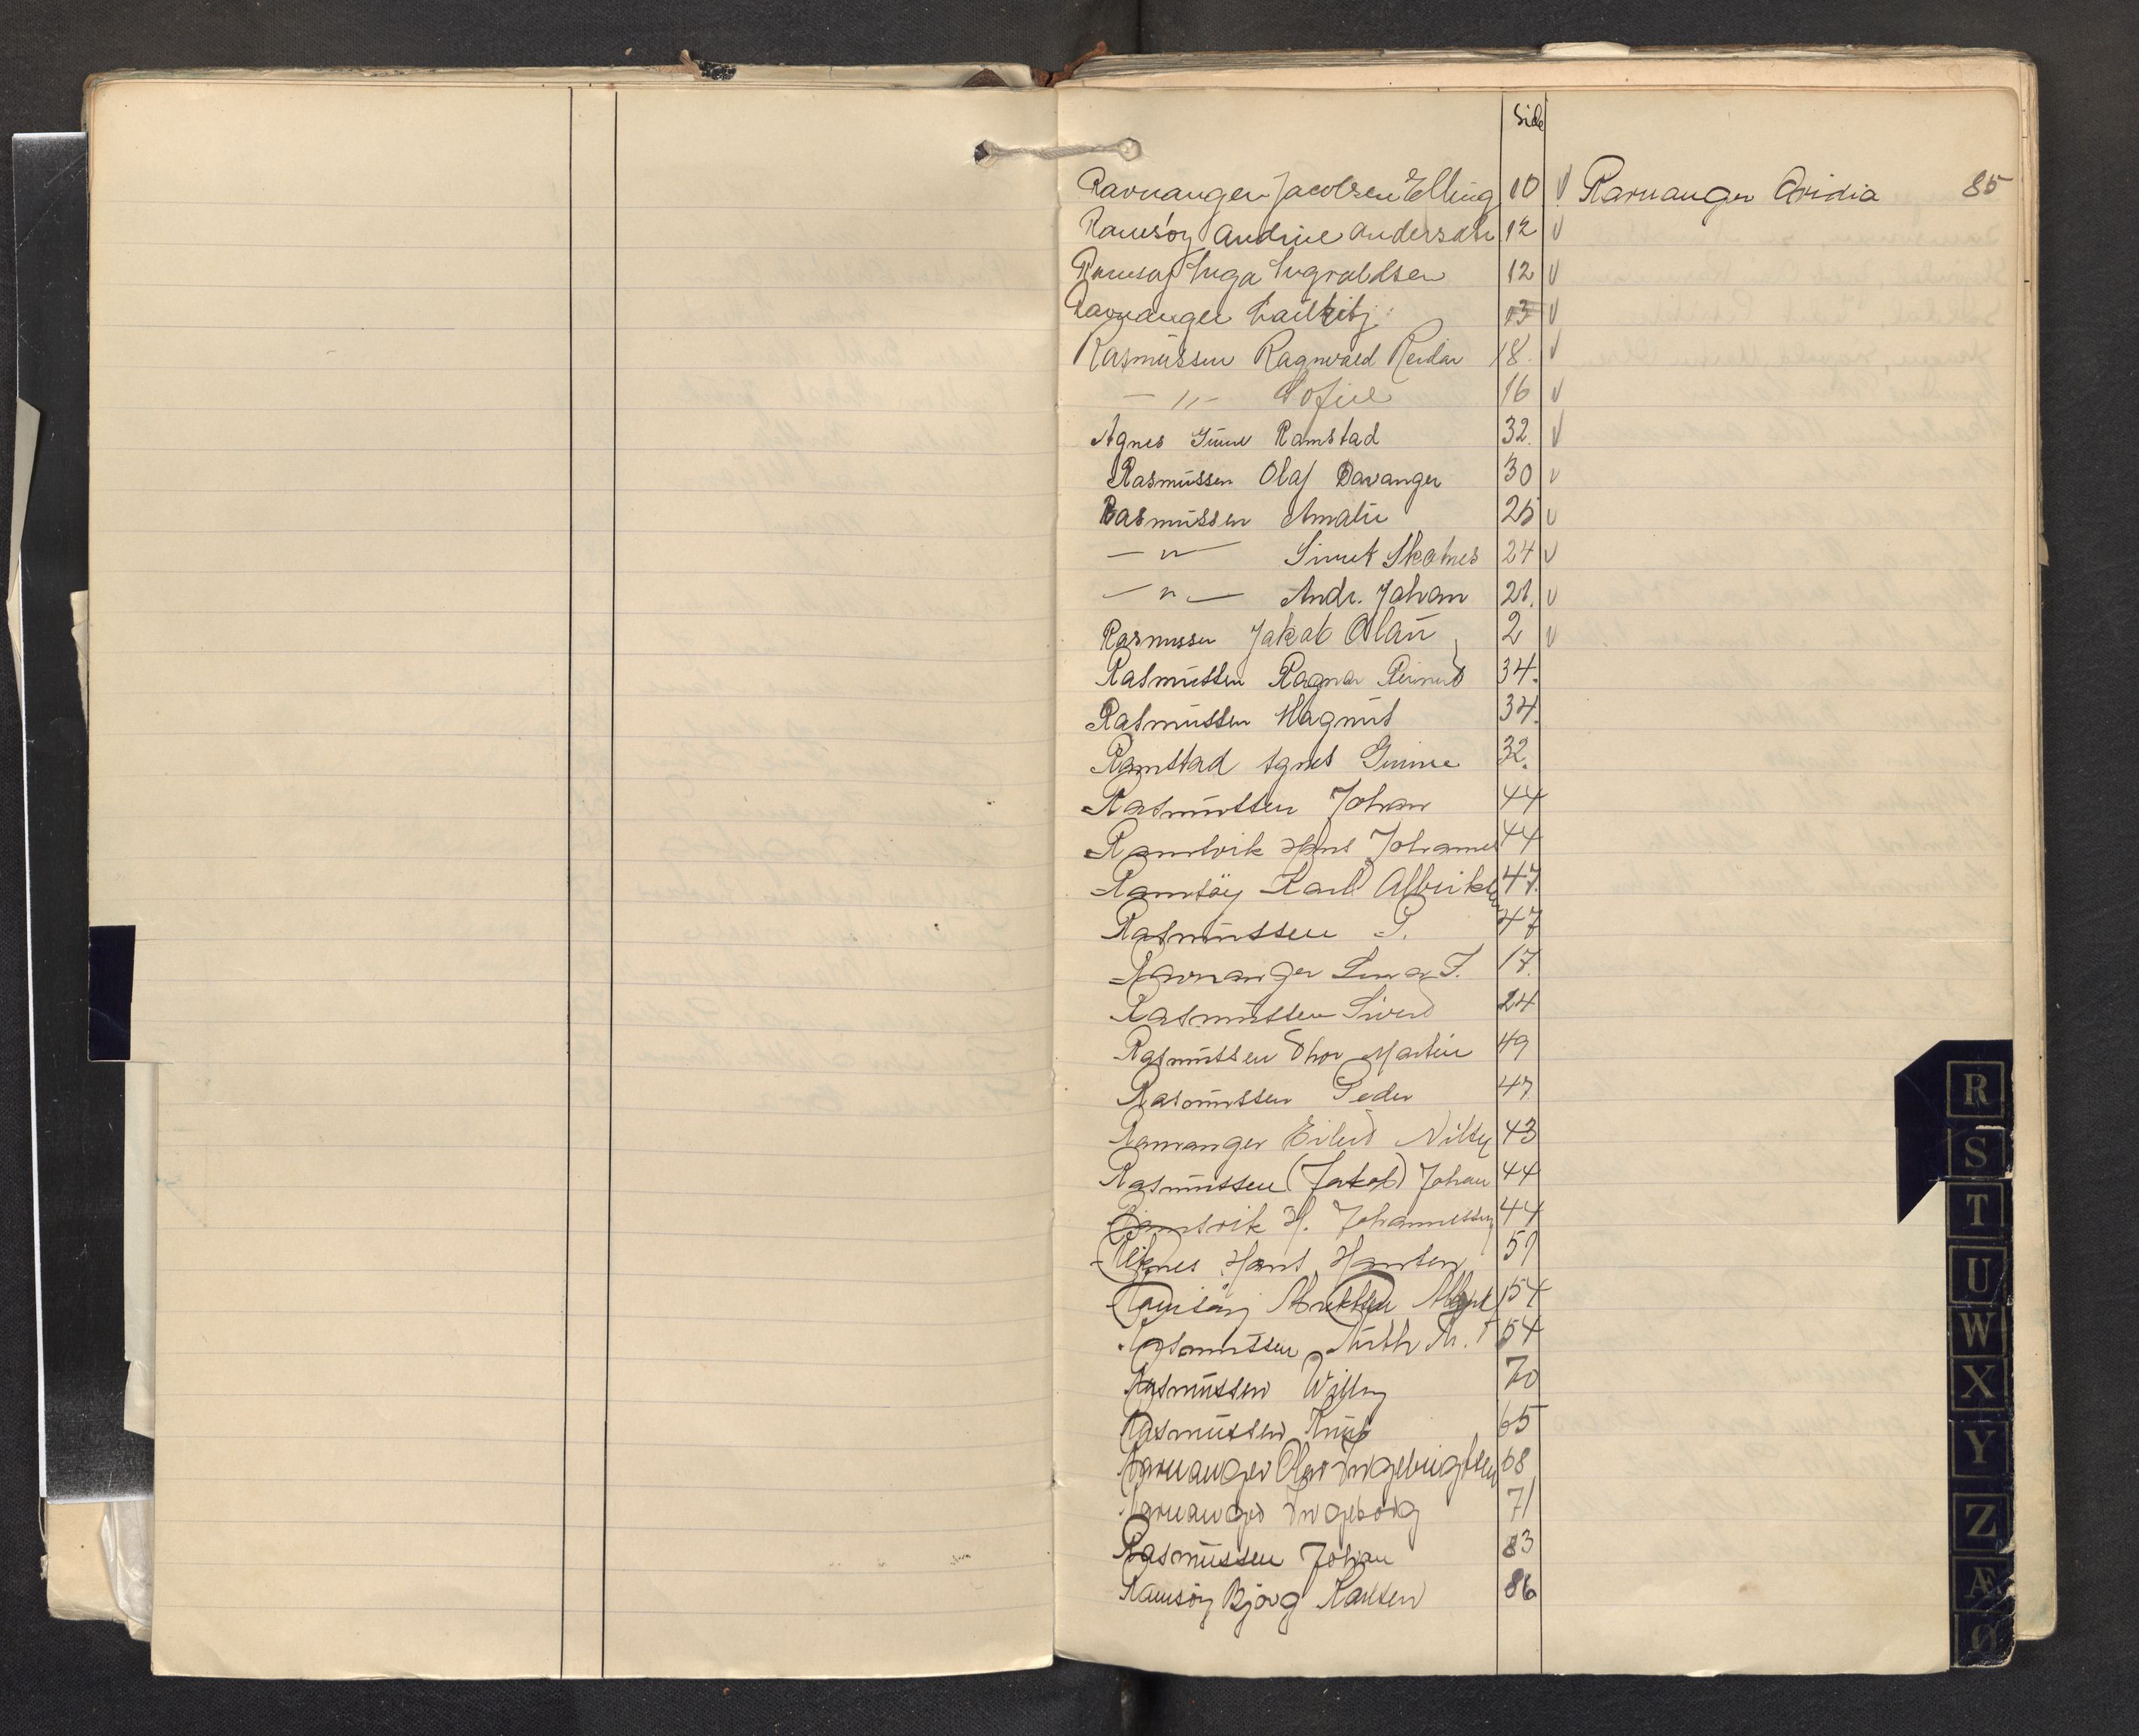 Side
Ravnanger Jacobsen Elling 10 V Ravnanger Ovidia 85
Ramsöy Andrine Andersdtr 12 V
Ramsöy Inga Ingvaldsen 12 V
Ravnanger 13 V
Rasmüssen Ragnvald Reidar 18. V
— " — Sofie 16 V
Agnes Gunne Ramstad 32. V
Rasmüssen Olaf Davanger 30 V
Rasmüssen Amalie 25 V
— " — Skotnes 24 V
— " — Andr. Johan 21. V
Rasmussen Jakob Olaü 2 V
Rasmüssen Ragnar 34.
Rasmüssen Magnüs 34.
Ramstad Agnes Gunne 32.
Rasmüssen Johan 44
Ramsvik Hans Johannes 44
Ramsöy Karl 47.
Rasmüssen P. 47
Ravnanger 17.
Rasmüssen Sivert 24
Rasmüssen Thor Martin 49
Rasmüssen Peder 47
Ravnanger Eilert Nilsen 43
Rasmüssen (Jakob) Johan 44
Ramsvik H. Johannessen 44
Reknes Hans Hansen 59
Ramsöy 54
Rasmüssen M. 54
Rasmüssen Willy 70
Rasmüssen Knüt 65
Ravnanger Olav Ingebrigtsen 68
Ravnanger Ingeborg 71
Rasmüssen Johan 83
Ramsöy Björg Karlsen 86
R
S
T
U
W
X
Y
Z
Æ
Ø